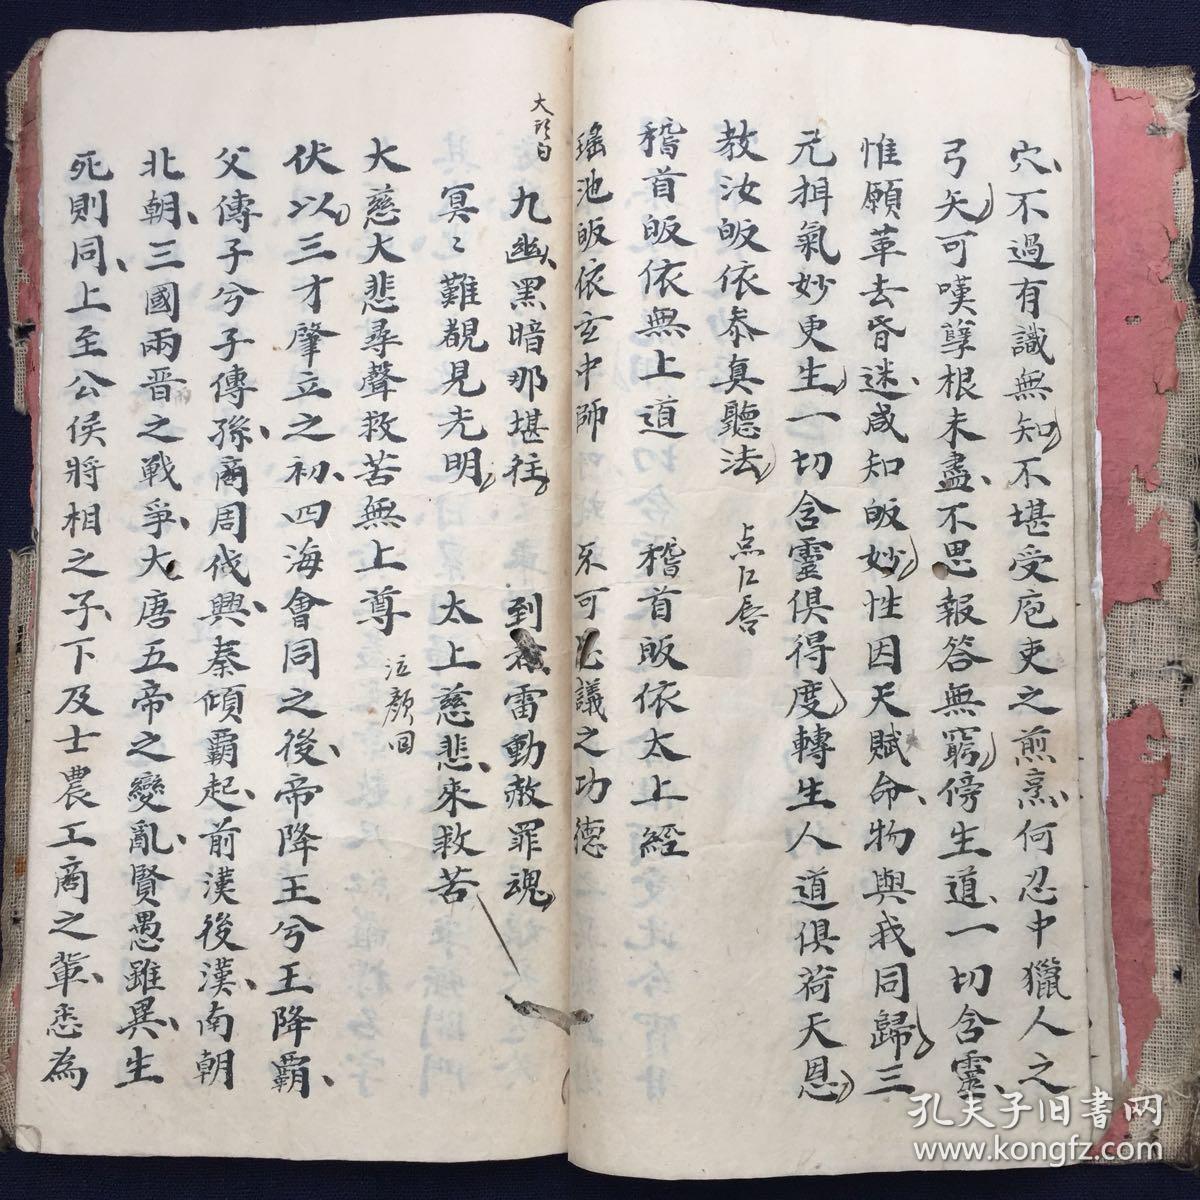 穴不過有識無知不堪受庖吏之煎烹何忍中獵人之
弓矢可嘆孽根未盡不思報答無窮傍生道一切含靈
惟願革去昏迷咸知皈妙性因天賦命物與我同歸三
元揖氣妙更生一切含靈俱得度轉生人道俱荷天恩
教汝皈依叅真聽法
点江唇
稽首皈依無上道 稽首皈依太上經
瑤池皈依玄中師 不可思議之功德
九幽黑暗那堪往 到 雷動赦罪魂
冥〻難覩見光明 太上慈悲來救苦
大慈大悲尋聲救苦無上尊
泣顏回
伏以三才肇立之初四海會同之後帝降王兮王降霸
父傳子兮子傳孫商周伐興秦傾霸起前漢後漢南朝
北朝三國兩晋之戰爭大唐五帝之變亂賢愚雖異生
死則同上至公侯將相之子下及士農工商之輩悉為
孔夫子旧书网
www.kongfz.com